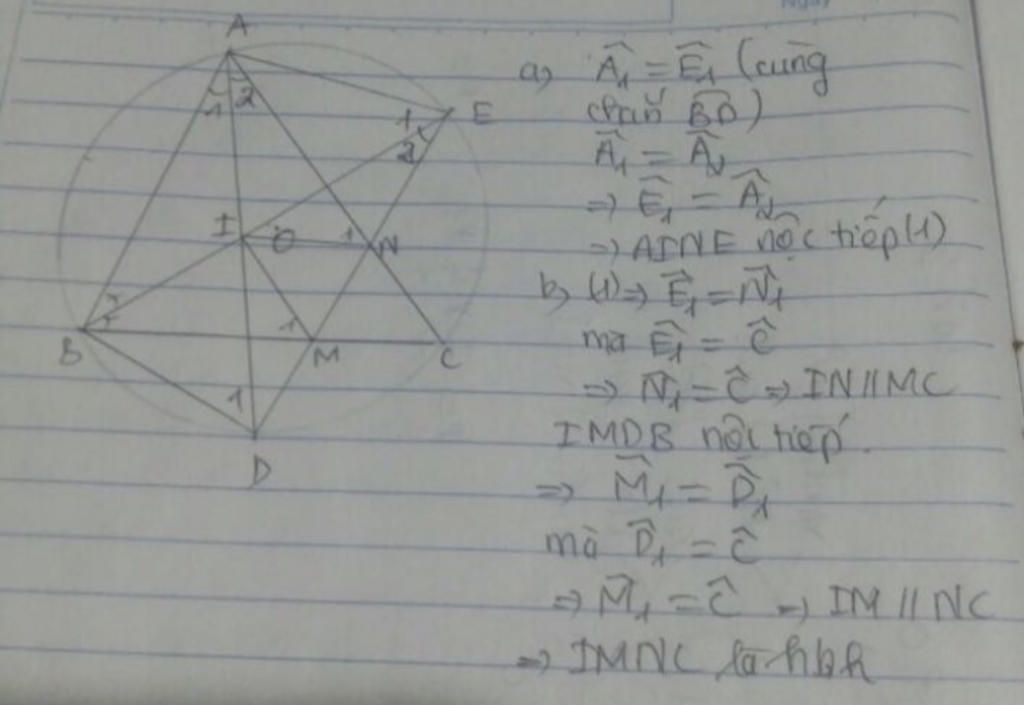 Ngày
A
1 2
E
1
2
I
O
1
N
B
1
M
C
1
D
a, Â₁ = Ê₁ (cùng
chắn BD)
Â₁ = Â₂
=> Ê₁ = Â₂
=> AINE nội tiếp (1)
b, (1) => Ê₁ = N̂₁
mà Ê₁ = Ĉ
=> N̂₁ = Ĉ => IN // MC
IMDB nội tiếp.
=> M̂₁ = D̂₁
mà D̂₁ = Ĉ
=> M̂₁ = Ĉ => IM // NC
=> IMNC là hbh